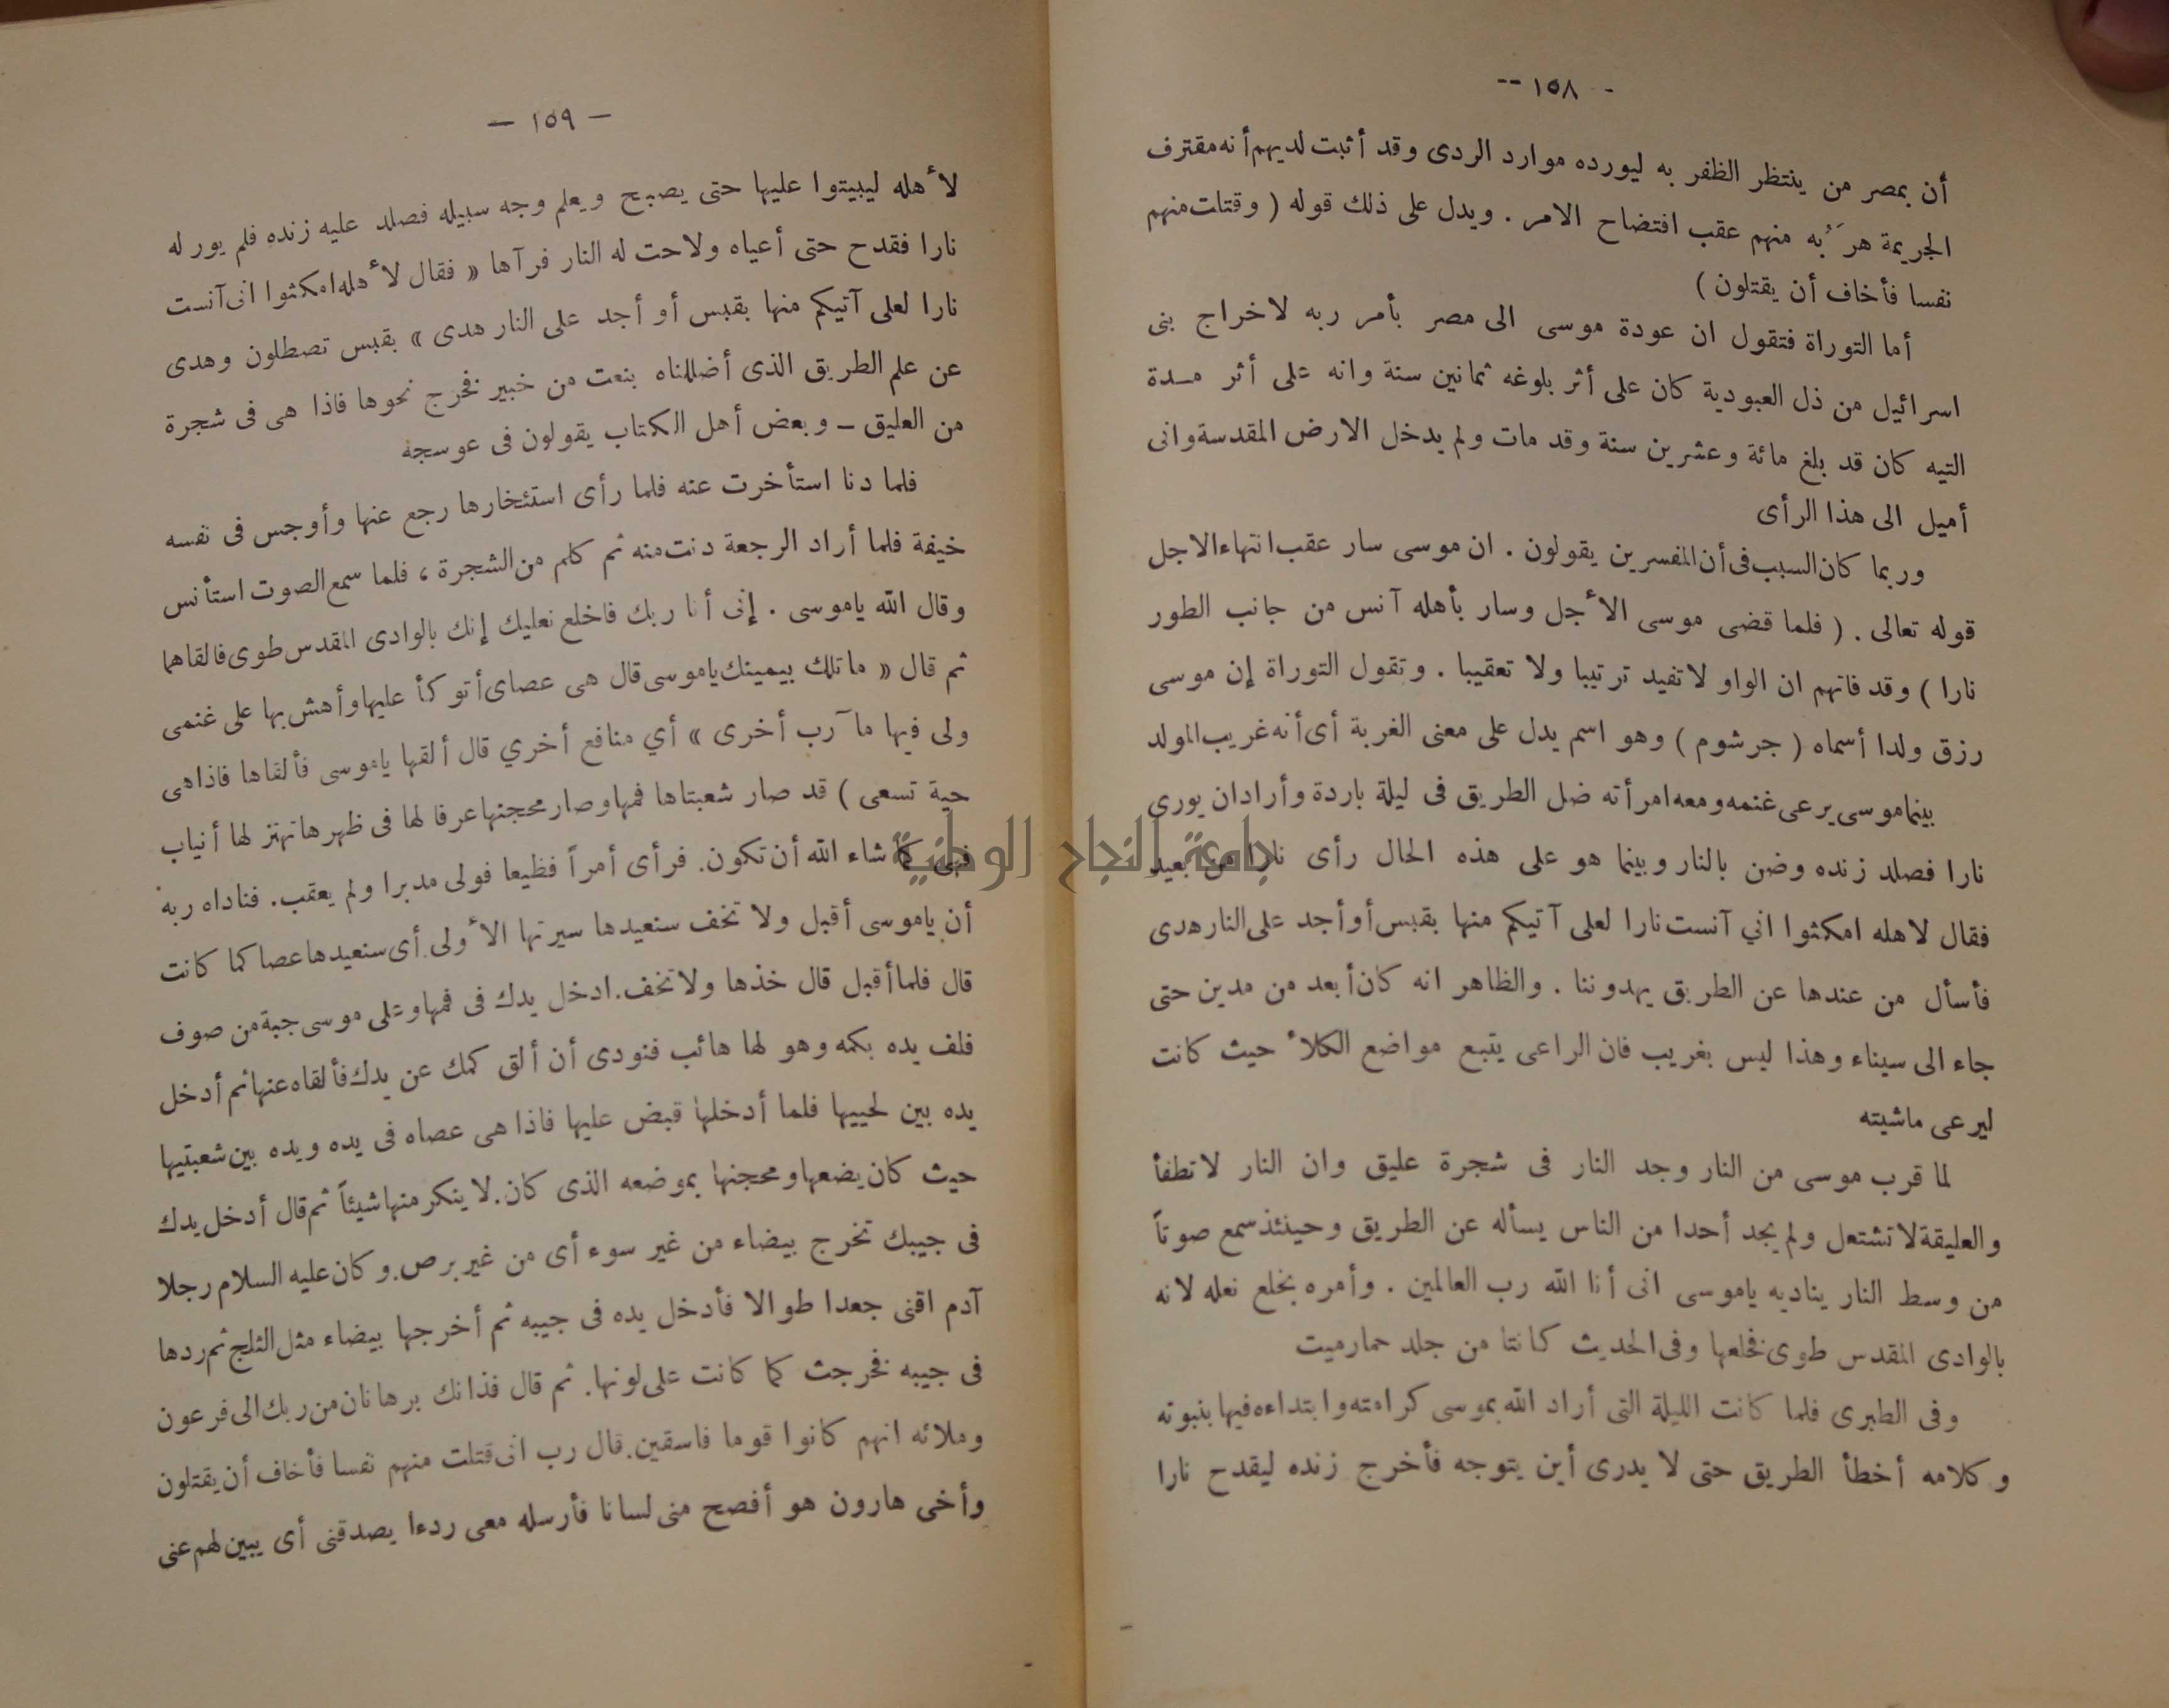 -- ١٥٨ -
أن بمصر من ينتظر الظفر به ليورده موارد الردى وقد أثبت لديهم أنه مقترف
الجريمة هرَبُه منهم عقب افتضاح الامر . ويدل على ذلك قوله ( وقتلت منهم
نفسا فأخاف أن يقتلون )
أما التوراة فتقول ان عودة موسى الى مصر بأمر ربه لاخراج بنى
اسرائيل من ذل العبودية كان على أثر بلوغه ثمانين سنة وانه على أثر مدة
التيه كان قد بلغ مائة وعشرين سنة وقد مات ولم يدخل الارض المقدسة وانى
أميل الى هذا الرأى
وربما كان السبب فى أن المفسرين يقولون . ان موسى سار عقب انتهاء الاجل
قوله تعالى . ( فلما قضى موسى الأجل وسار بأهله آنس من جانب الطور
نارا ) وقد فاتهم ان الواو لا تفيد ترتيبا ولا تعقيبا . وتقول التوراة إن موسى
رزق ولدا أسماه ( جرشوم ) وهو اسم يدل على معنى الغربة أى أنه غريب المولد
بينما موسى يرعى غنمه ومعه امرأته ضل الطريق فى ليلة باردة وأراد ان يورى
نارا فصلد زنده وضن بالنار وبينما هو على هذه الحال رأى نارا من بعيد
فقال لاهله امكثوا اني آنست نارا لعلى آتيكم منها بقبس أو أجد على النار هدى
فأسأل من عندها عن الطريق يهدوننا . والظاهر انه كان أبعد من مدين حتى
جاء الى سيناء وهذا ليس بغريب فان الراعى يتبع مواضع الكلأ حيث كانت
ليرعى ماشيته
لما قرب موسى من النار وجد النار فى شجرة عليق وان النار لا تطفأ
والعليقة لا تشتعل ولم يجد أحدا من الناس يسأله عن الطريق وحينئذ سمع صوتاً
من وسط النار يناديه ياموسى انى أنا الله رب العالمين . وأمره بخلع نعله لانه
بالوادى المقدس طوى فخلعها وفى الحديث كانتا من جلد حمار ميت
وفى الطبرى فلما كانت الليلة التى أراد الله بموسى كرامته وابتداءه فيها بنبوته
وكلامه أخطأ الطريق حتى لا يدرى أين يتوجه فأخرج زنده ليقدح نارا
— ١٥٩ —
لأهله ليبيتوا عليها حتى يصبح ويعلم وجه سبيله فصلد عليه زنده فلم يور له
نارا فقدح حتى أعياه ولاحت له النار فرآها « فقال لأهله امكثوا انى آنست
نارا لعلى آتيكم منها بقبس أو أجد على النار هدى » بقبس تصطلون وهدى
عن علم الطريق الذى أضللناه بنعت من خبير فخرج نحوها فاذا هى فى شجرة
من العليق ـ وبعض أهل الكتاب يقولون فى عوسجة
فلما دنا استأخرت عنه فلما رأى استئخارها رجع عنها وأوجس فى نفسه
خيفة فلما أراد الرجعة دنت منه ثم كلم من الشجرة ، فلما سمع الصوت استأنس
وقال الله ياموسى . إنى أنا ربك فاخلع نعليك إنك بالوادى المقدس طوى فالقاهما
ثم قال « ما تلك بيمينك ياموسى قال هى عصاى أتوكأ عليها وأهش بها على غنمى
ولى فيها مآرب أخرى » أي منافع أخري قال ألقها ياموسى فألقاها فاذا هى
حية تسعى ) قد صار شعبتاها فمها وصار محجنها عرفا لها فى ظهرها تهتز لها أنياب
فهى كما شاء الله أن تكون. فرأى أمراً فظيعا فولى مدبرا ولم يعقب. فناداه ربه
أن ياموسى أقبل ولا تخف سنعيدها سيرتها الأولى. أى سنعيدها عصا كما كانت
قال فلما أقبل قال خذها ولا تخف. ادخل يدك فى فمها وعلى موسى جبة من صوف
فلف يده بكمه وهو لها هائب فنودى أن ألق كمك عن يدك فألقاه عنها ثم أدخل
يده بين لحييها فلما أدخلها قبض عليها فاذا هى عصاه فى يده ويده بين شعبتيها
حيث كان يضعها ومحجنها بموضعه الذى كان. لا ينكر منها شيئاً ثم قال أدخل يدك
فى جيبك تخرج بيضاء من غير سوء أى من غير برص. وكان عليه السلام رجلا
آدم اقنى جعدا طوالا فأدخل يده فى جيبه ثم أخرجها بيضاء مثل الثلج ثم ردها
فى جيبه فخرجت كما كانت على لونها. ثم قال فذانك برهانان من ربك الى فرعون
وملائه انهم كانوا قوما فاسقين. قال رب انى قتلت منهم نفسا فأخاف أن يقتلون
وأخى هارون هو أفصح منى لسانا فأرسله معى ردءا يصدقنى أى يبين لهم عنى
جامعة النجاح الوطنية